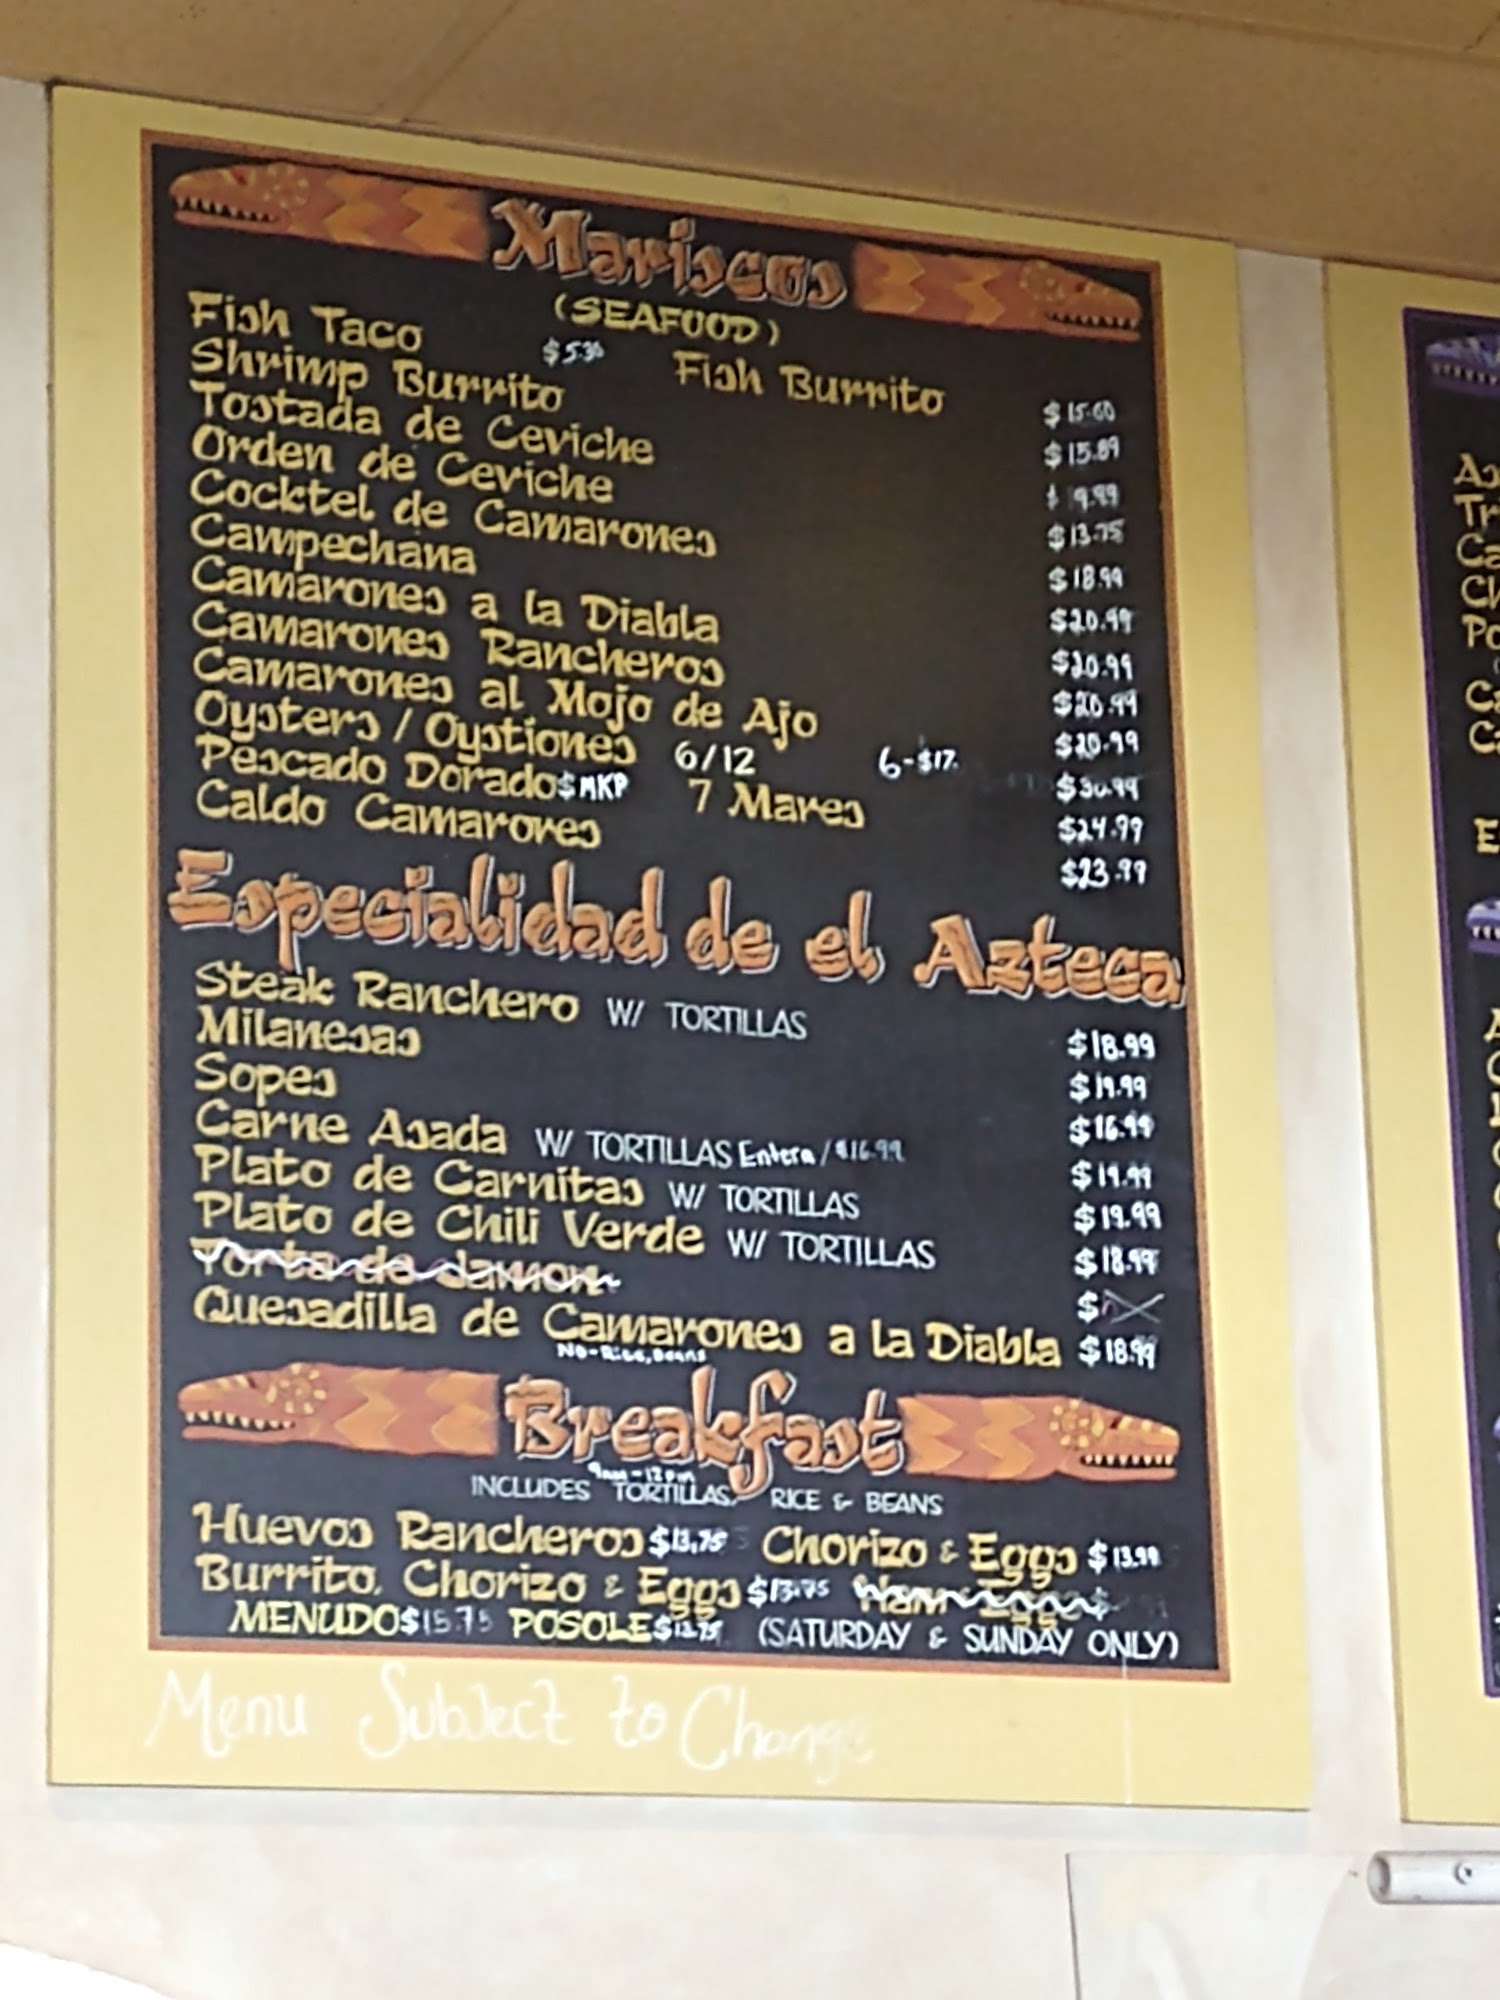 Mariscos
(SEAFOOD)
Fish Taco $5.30 Fish Burrito $15.00
Shrimp Burrito $15.89
Tostada de Ceviche $9.99
Orden de Ceviche $13.75
Cocktel de Camarones $18.99
Campechana $20.99
Camarones a la Diabla $20.99
Camarones Rancheros $20.99
Camarones al Mojo de Ajo $20.99
Oysters / Oystiones 6/12 6-$17. $30.99
Pescado Dorado $MKP 7 Mares $24.99
Caldo Camarones $23.99
Especialidad de el Azteca
Steak Ranchero W/ TORTILLAS $18.99
Milanesas $19.99
Sopes $16.99
Carne Asada W/ TORTILLAS Entera / $16.99 $19.99
Plato de Carnitas W/ TORTILLAS $19.99
Plato de Chili Verde W/ TORTILLAS $18.99
Torta de Jamon $
Quesadilla de Camarones a la Diabla $18.99
No-Rice, Beans
Breakfast
9am-12pm
INCLUDES TORTILLAS, RICE & BEANS
Huevos Rancheros $13.75 Chorizo & Eggs $13.99
Burrito, Chorizo & Eggs $13.75 Ham & Eggs $
MENUDO $15.75 POSOLE $13.75 (SATURDAY & SUNDAY ONLY)
Menu Subject to Change